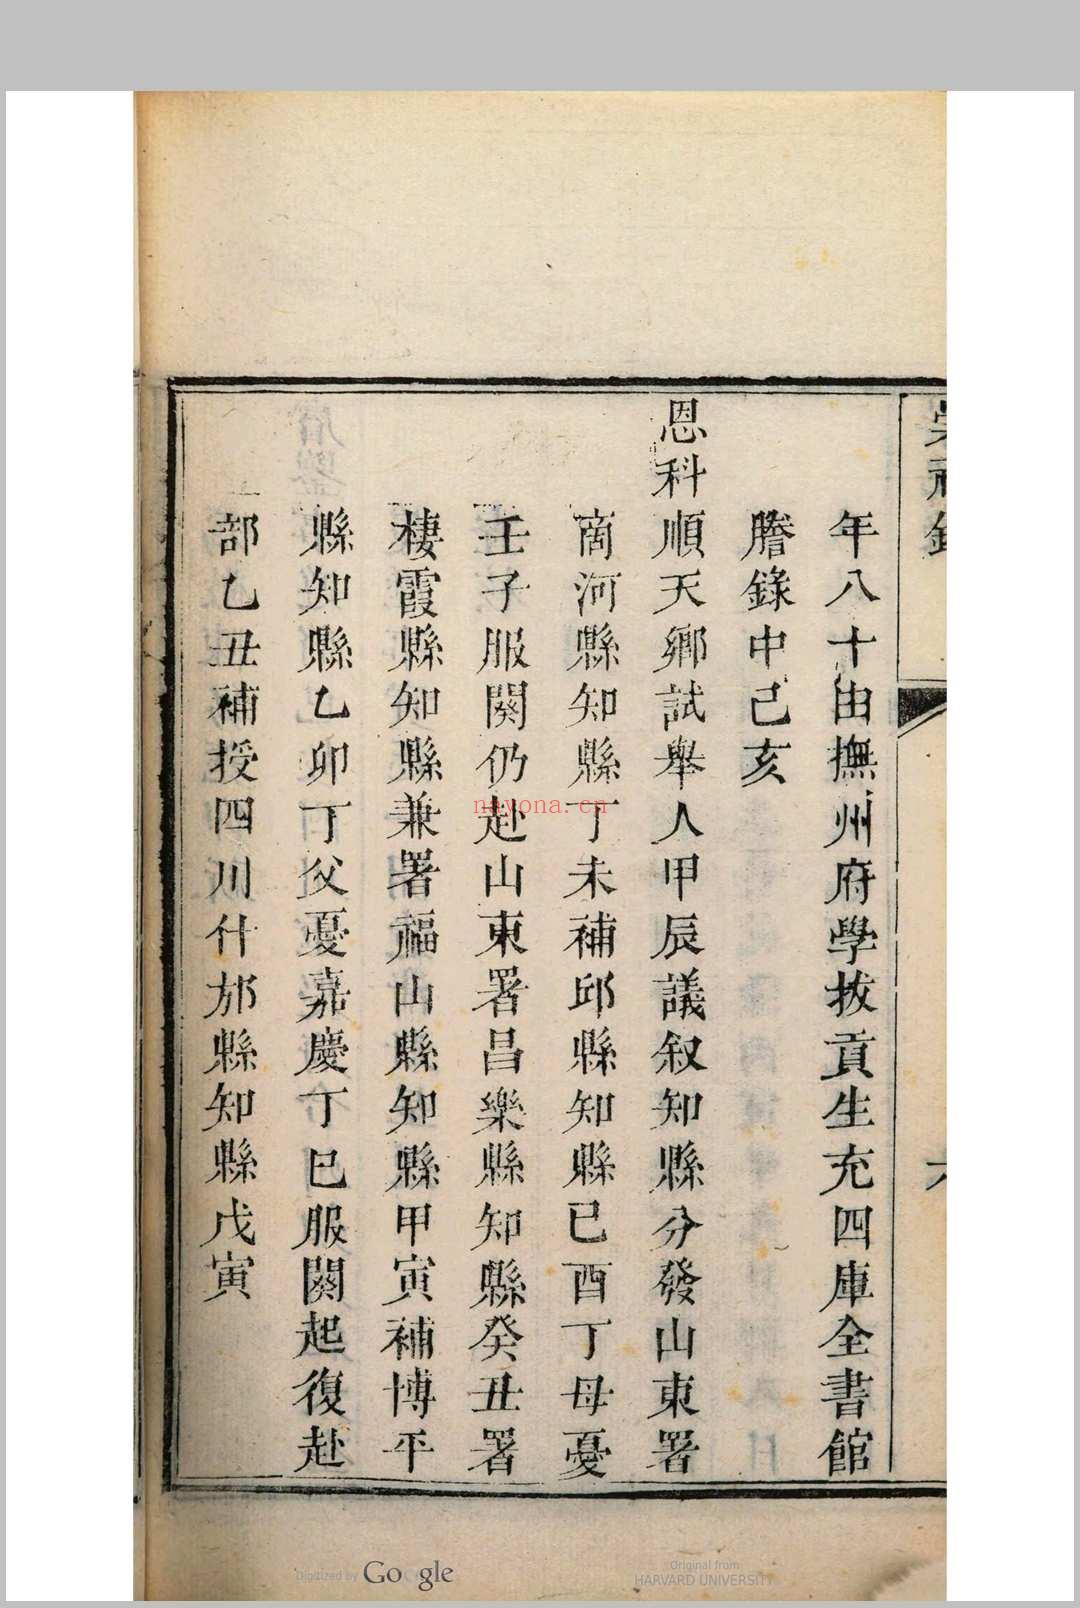 崇祀錄
年八十由撫州府學拔貢生充四庫全書館
謄錄中己亥
恩科順天鄉試舉人甲辰議叙知縣分發山東署
商河縣知縣丁未補邱縣知縣己酉丁母憂
壬子服闋仍赴山東署昌樂縣知縣癸丑署
棲霞縣知縣兼署福山縣知縣甲寅補博平
縣知縣乙卯丁父憂嘉慶丁巳服闋起復赴
部乙丑補授四川什邡縣知縣戊寅
nayona.cn
Digitized by Google
Original from
HARVARD UNIVERSITY